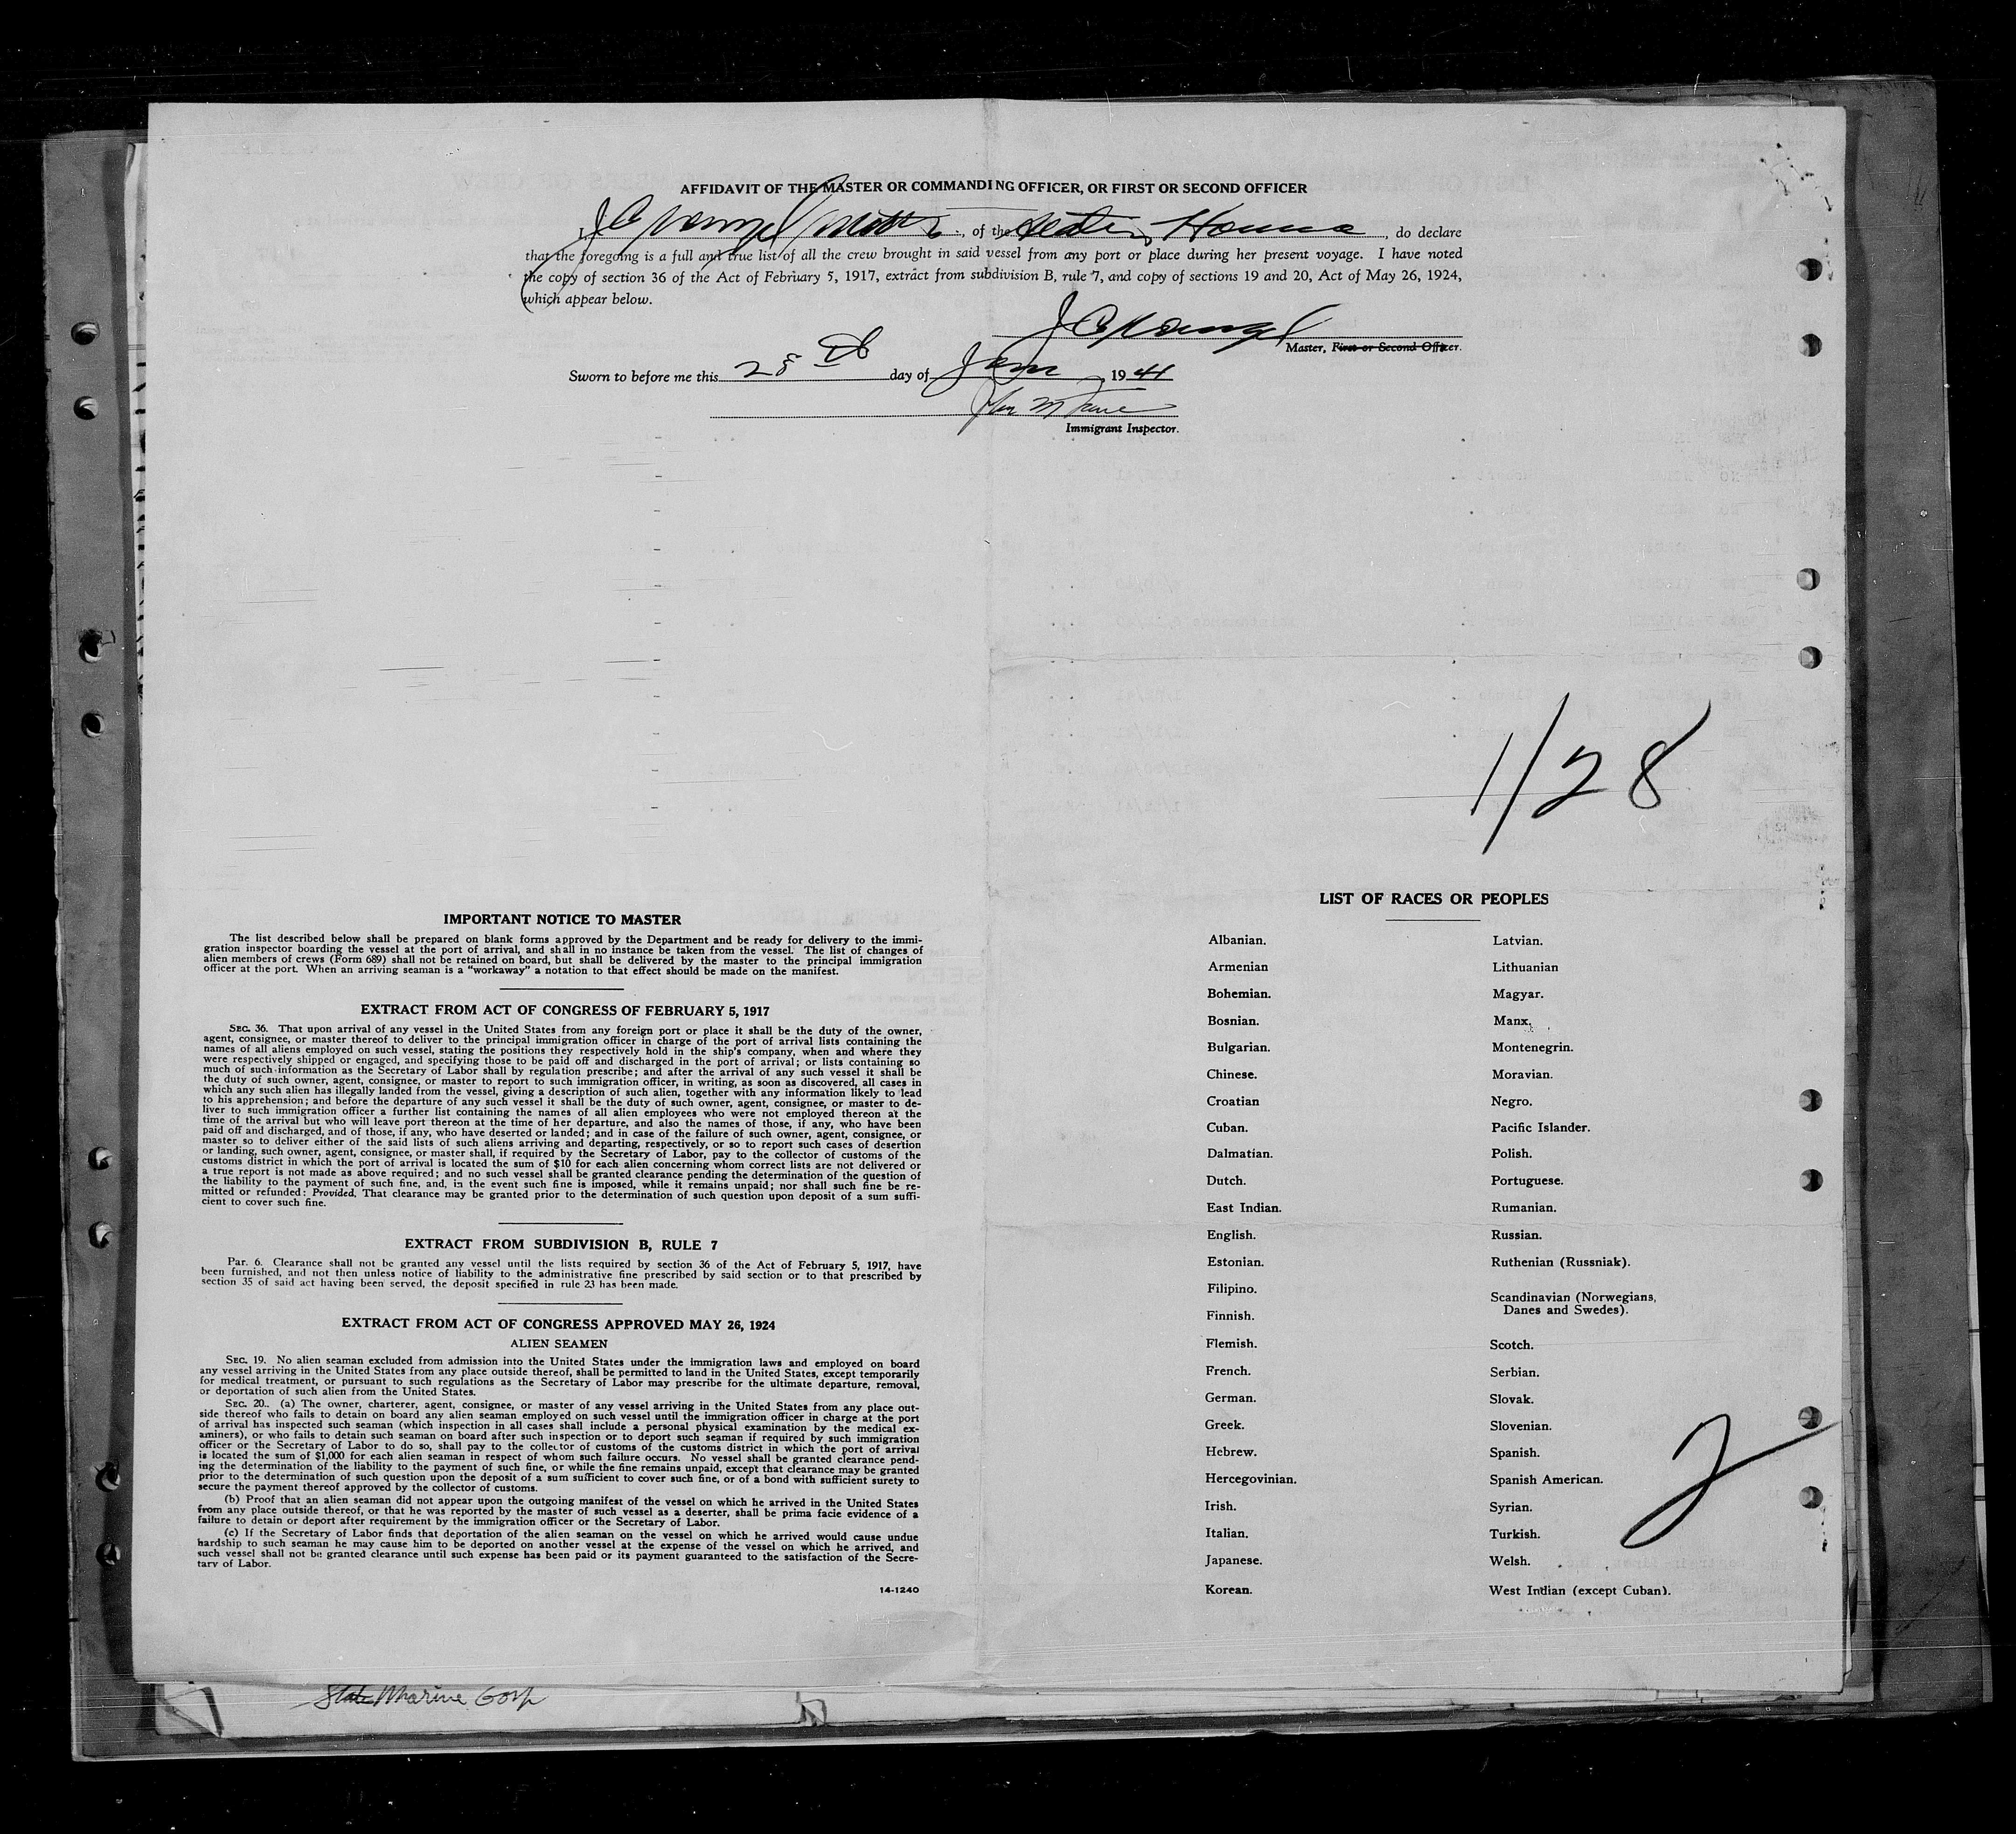 AFFIDAVIT OF THE MASTER OR COMMANDING OFFICER, OR FIRST OR SECOND OFFICER
I, J C Master, of the do declare
that the foregoing is a full and true list of all the crew brought in said vessel from any port or place during her present voyage. I have noted
the copy of section 36 of the Act of February 5, 1917, extract from subdivision B, rule 7, and copy of sections 19 and 20, Act of May 26, 1924,
which appear below.
Master, First or Second Officer.
Sworn to before me this 28 th day of Jan 19 41
Immigrant Inspector.
1/28
IMPORTANT NOTICE TO MASTER
The list described below shall be prepared on blank forms approved by the Department and be ready for delivery to the immi-
gration inspector boarding the vessel at the port of arrival, and shall in no instance be taken from the vessel. The list of changes of
alien members of crews (Form 689) shall not be retained on board, but shall be delivered by the master to the principal immigration
officer at the port. When an arriving seaman is a "workaway" a notation to that effect should be made on the manifest.
EXTRACT FROM ACT OF CONGRESS OF FEBRUARY 5, 1917
SEC. 36. That upon arrival of any vessel in the United States from any foreign port or place it shall be the duty of the owner,
agent, consignee, or master thereof to deliver to the principal immigration officer in charge of the port of arrival lists containing the
names of all aliens employed on such vessel, stating the positions they respectively hold in the ship's company, when and where they
were respectively shipped or engaged, and specifying those to be paid off and discharged in the port of arrival; or lists containing so
much of such information as the Secretary of Labor shall by regulation prescribe; and after the arrival of any such vessel it shall be
the duty of such owner, agent, consignee, or master to report to such immigration officer, in writing, as soon as discovered, all cases in
which any such alien has illegally landed from the vessel, giving a description of such alien, together with any information likely to lead
to his apprehension; and before the departure of any such vessel it shall be the duty of such owner, agent, consignee, or master to de-
liver to such immigration officer a further list containing the names of all alien employees who were not employed thereon at the
time of the arrival but who will leave port thereon at the time of her departure, and also the names of those, if any, who have been
paid off and discharged, and of those, if any, who have deserted or landed; and in case of the failure of such owner, agent, consignee, or
master so to deliver either of the said lists of such aliens arriving and departing, respectively, or so to report such cases of desertion
or landing, such owner, agent, consignee, or master shall, if required by the Secretary of Labor, pay to the collector of customs of the
customs district in which the port of arrival is located the sum of $10 for each alien concerning whom correct lists are not delivered or
a true report is not made as above required; and no such vessel shall be granted clearance pending the determination of the question of
the liability to the payment of such fine, and, in the event such fine is imposed, while it remains unpaid; nor shall such fine be re-
mitted or refunded: Provided, That clearance may be granted prior to the determination of such question upon deposit of a sum suffi-
cient to cover such fine.
EXTRACT FROM SUBDIVISION B, RULE 7
Par. 6. Clearance shall not be granted any vessel until the lists required by section 36 of the Act of February 5, 1917, have
been furnished, and not then unless notice of liability to the administrative fine prescribed by said section or to that prescribed by
section 35 of said act having been served, the deposit specified in rule 23 has been made.
EXTRACT FROM ACT OF CONGRESS APPROVED MAY 26, 1924
ALIEN SEAMEN
SEC. 19. No alien seaman excluded from admission into the United States under the immigration laws and employed on board
any vessel arriving in the United States from any place outside thereof, shall be permitted to land in the United States, except temporarily
for medical treatment, or pursuant to such regulations as the Secretary of Labor may prescribe for the ultimate departure, removal,
or deportation of such alien from the United States.
SEC. 20. (a) The owner, charterer, agent, consignee, or master of any vessel arriving in the United States from any place out-
side thereof who fails to detain on board any alien seaman employed on such vessel until the immigration officer in charge at the port
of arrival has inspected such seaman (which inspection in all cases shall include a personal physical examination by the medical ex-
aminers), or who fails to detain such seaman on board after such inspection or to deport such seaman if required by such immigration
officer or the Secretary of Labor to do so, shall pay to the collector of customs of the customs district in which the port of arrival
is located the sum of $1,000 for each alien seaman in respect of whom such failure occurs. No vessel shall be granted clearance pend-
ing the determination of the liability to the payment of such fine, or while the fine remains unpaid, except that clearance may be granted
prior to the determination of such question upon the deposit of a sum sufficient to cover such fine, or of a bond with sufficient surety to
secure the payment thereof approved by the collector of customs.
(b) Proof that an alien seaman did not appear upon the outgoing manifest of the vessel on which he arrived in the United States
from any place outside thereof, or that he was reported by the master of such vessel as a deserter, shall be prima facie evidence of a
failure to detain or deport after requirement by the immigration officer or the Secretary of Labor.
(c) If the Secretary of Labor finds that deportation of the alien seaman on the vessel on which he arrived would cause undue
hardship to such seaman he may cause him to be deported on another vessel at the expense of the vessel on which he arrived, and
such vessel shall not be granted clearance until such expense has been paid or its payment guaranteed to the satisfaction of the Secre-
tary of Labor.
14-1240
LIST OF RACES OR PEOPLES
Albanian.
Armenian
Bohemian.
Bosnian.
Bulgarian.
Chinese.
Croatian
Cuban.
Dalmatian.
Dutch.
East Indian.
English.
Estonian.
Filipino.
Finnish.
Flemish.
French.
German.
Greek.
Hebrew.
Hercegovinian.
Irish.
Italian.
Japanese.
Korean.
Latvian.
Lithuanian
Magyar.
Manx.
Montenegrin.
Moravian.
Negro.
Pacific Islander.
Polish.
Portuguese.
Rumanian.
Russian.
Ruthenian (Russniak).
Scandinavian (Norwegians,
Danes and Swedes).
Scotch.
Serbian.
Slovak.
Slovenian.
Spanish.
Spanish American.
Syrian.
Turkish.
Welsh.
West Indian (except Cuban).
2
State Marine Corp